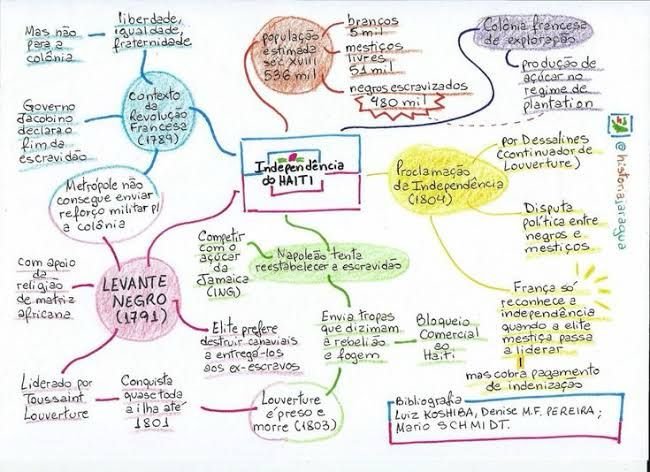 Mas não
para a
colônia
liberdade,
igualdade,
fraternidade
Contexto
da
Revolução
Francesa
(1789)
Governo
Jacobino
declara o
fim da
escravidão
população
estimada
séc XVIII
536 mil
brancos
5 mil
mestiços
livres
51 mil
negros escravizados
480 mil
Colônia francesa
de exploração
produção de
açúcar no
regime de
plantation
@historiajaragua
Independência
do HAITI
Proclamação
da Independência
(1804)
por Dessalines
(continuador de
Louverture)
Disputa
política entre
negros e
mestiços
França só
reconhece a
independência
quando a elite
mestiça passa
a liderar
mas cobra pagamento
de indenização
Metrópole não
consegue enviar
reforço militar p/
a colônia
LEVANTE
NEGRO
(1791)
Com apoio
da
religião
de matriz
africana
Liderado por
Toussaint
Louverture
Conquista
quase toda
a ilha até
1801
Elite prefere
destruir canaviais
a entregá-los
aos ex-escravos
Louverture
é preso e
morre (1803)
Competir
com o
açúcar
da
Jamaica
(ING)
Napoleão tenta
reestabelecer a escravidão
Envia tropas
que dizimam
a rebelião
e fogem
Bloqueio
Comercial
ao
Haiti
Bibliografia
Luiz KOSHIBA, Denise M.F. PEREIRA;
Mario SCHMIDT.